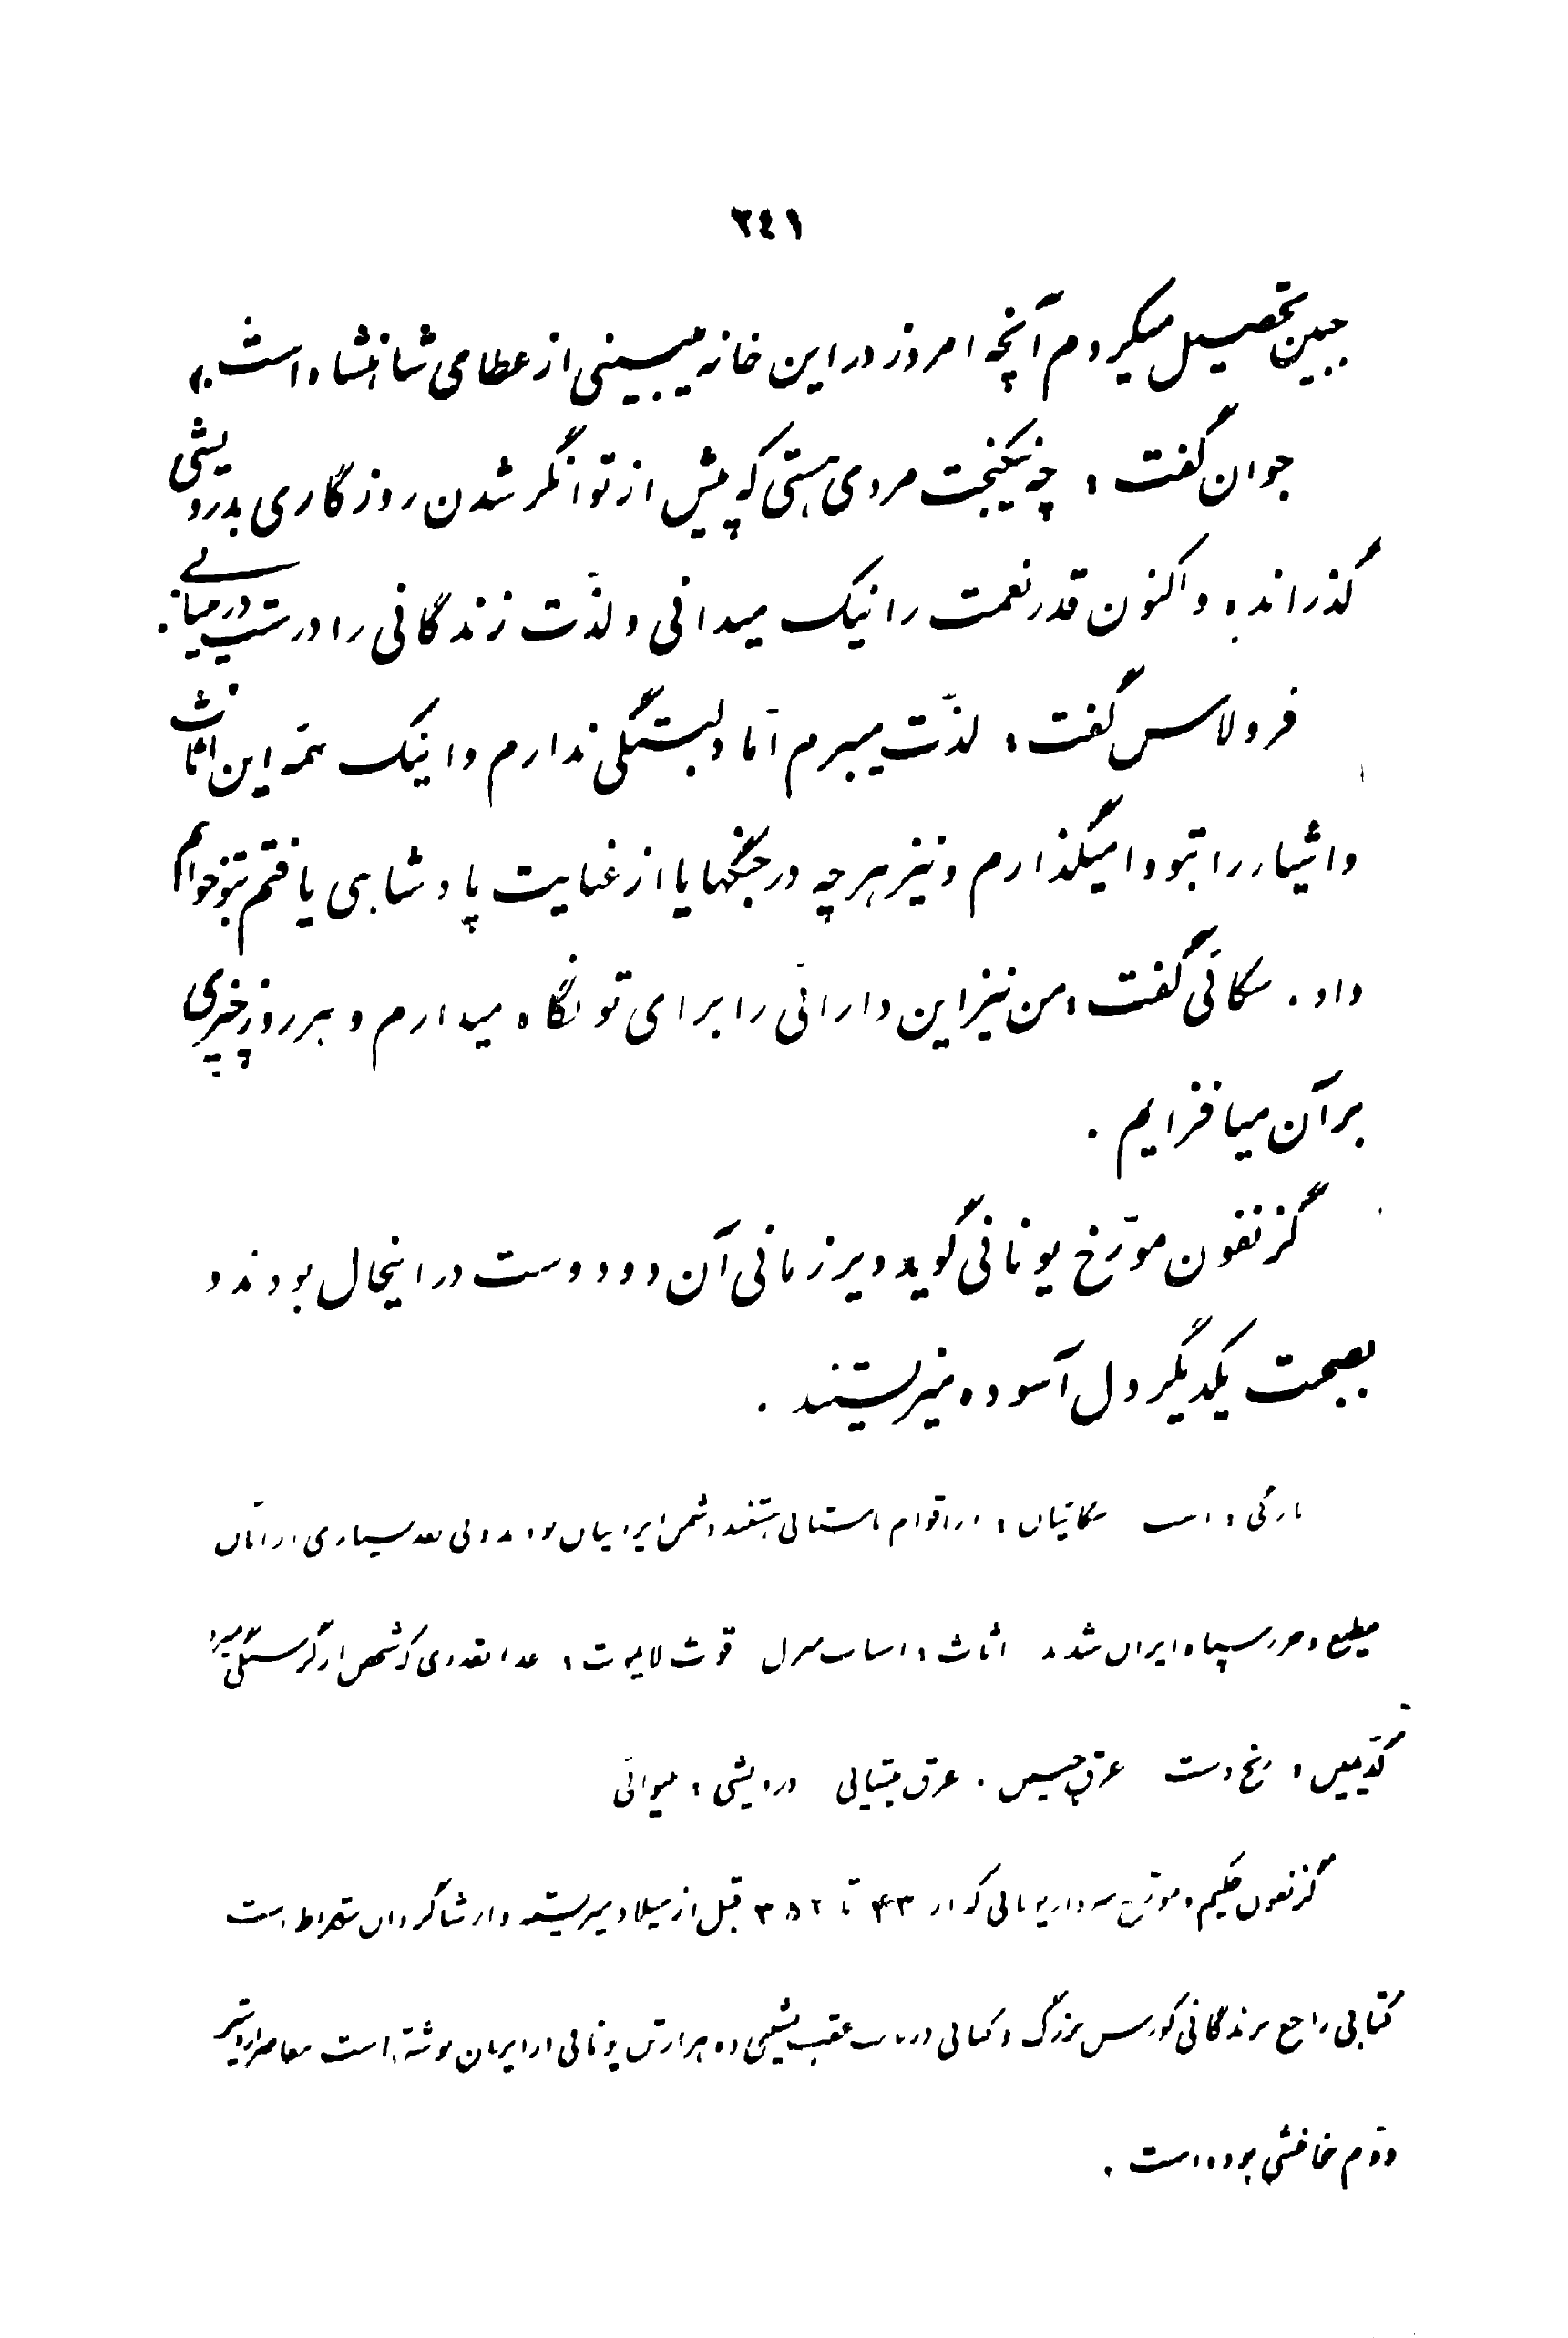 ٢٤١
جبین تحصیل میکردم آنچه امروز در این خانه میبینی از عطای شاهنشاه است»
جوان گفت : چه نیکبخت مردی هستی که پیش از توانگر شدن روزگاری بدرویشی
گذرانده و اکنون قدر نعمت را نیک میدانی و لذّت زندگانی را درست درمییابی .
فرولاس گفت : لذّت میبرم امّا دلبستگی ندارم و اینک همه این اثاث
و اشیاء را بتو وامیگذارم و نیز هرچه در جنگها یا از عنایت پادشاهی یافتم بتو خواهم
داد . سکائی گفت : من نیز این دارائی را برای تو نگاه میدارم و هر روز چیزی
بر آن میافزایم .
گزنفون مورّخ یونانی گوید دیر زمانی آن دو دوست در اینحال بودند و
بصحبت یکدیگر دل آسوده میزیستند .
بارگی : اسب سکائیان : از اقوام باستانی هستند دشمن ایرانیان بودند ولی بعد بسیاری از آنان
مطیع و جزء سپاه ایران شدند اثاث : اسباب منزل قوت لایموت : غذا بقدری که شخص از گرسنگی نمیرد
کدّ یمین : رنج دست عرق جبین : عرق پیشانی درویشی : بینوائی
گزنفون حکیم و مورّخ و سردار یونانی که از ۴۳۰ تا ۳۵۲ قبل از میلاد میزیسته و از شاگردان سقراط است
کتابی راجع بزندگانی کورس بزرگ و کتابی در باب عقب نشینی ده هزار تن یونانی از ایران نوشته است معاصر اردشیر
دوّم هخامنشی بوده است .